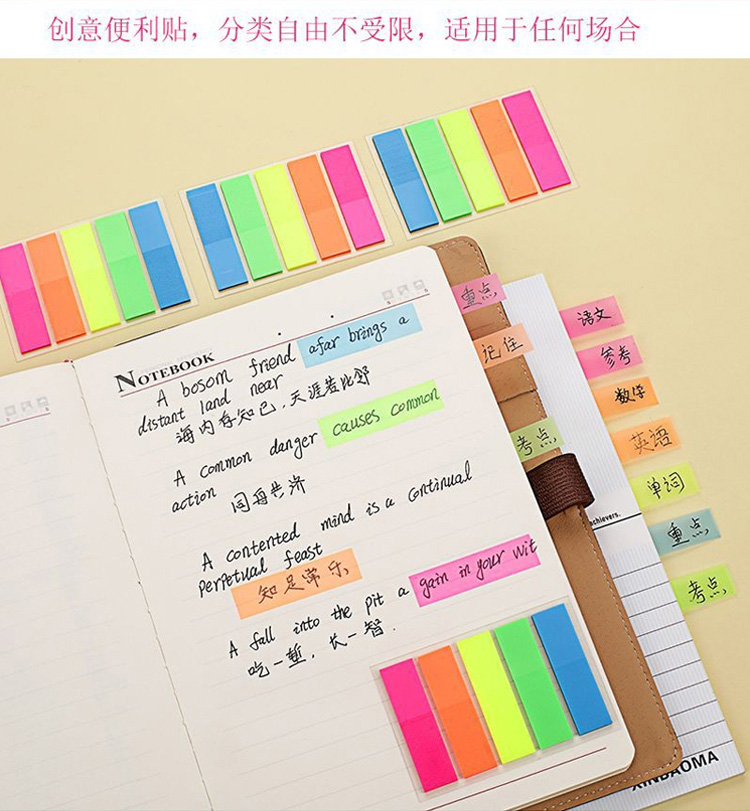 创意便利贴，分类自由不受限，适用于任何场合
NOTEBOOK
A bosom friend afar brings a
distant land near
海内存知己，天涯若比邻
A common danger causes common
action 同舟共济
A contented mind is a continual
perpetual feast
知足常乐
A fall into the pit a gain in your wit
吃一堑，长一智.
重点
记住
考点
语文
参考
数学
英语
单词
重点
考点
achievers.
XINBAOMA